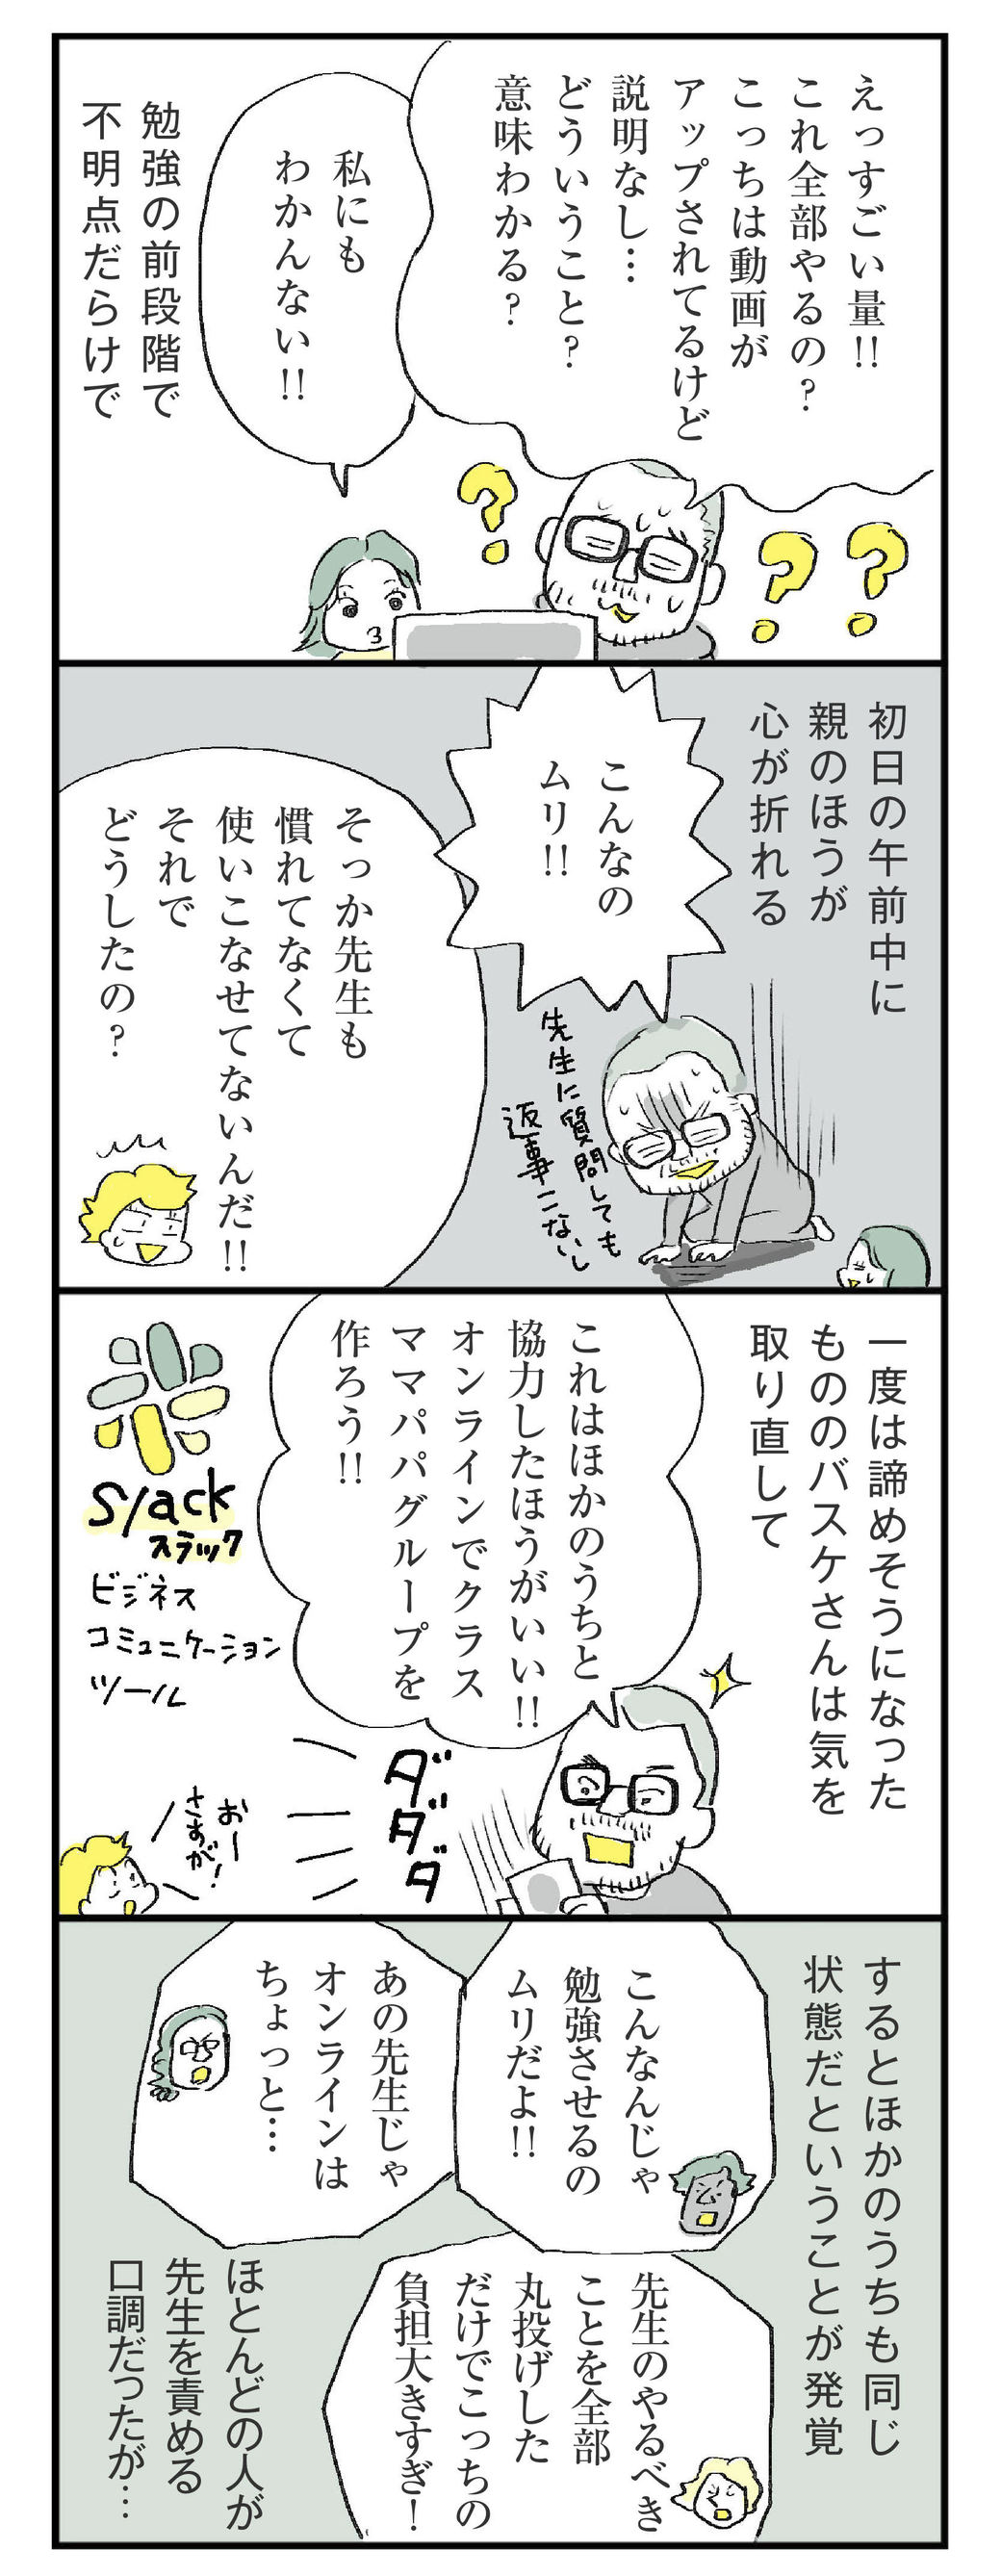 えっすごい量!!
これ全部やるの?
こっちは動画が
アップされてるけど
説明なし…
どういうこと?
意味わかる?
私にも
わかんない!!
勉強の前段階で
不明点だらけで
初日の午前中に
親のほうが
心が折れる
こんなの
ムリ!!
先生に質問しても
返事こないし
そっか先生も
慣れてなくて
使いこなせてないんだ!!
それで
どうしたの?
一度は諦めそうになった
もののバスケさんは気を
取り直して
これはほかのうちと
協力したほうがいい!!
オンラインでクラス
ママパパグループを
作ろう!!
ダダダ
slack
スラック
ビジネス
コミュニケーション
ツール
おー
さすが!
するとほかのうちも同じ
状態だということが発覚
こんなんじゃ
勉強させるの
ムリだよ!!
あの先生じゃ
オンラインは
ちょっと…
先生のやるべき
ことを全部
丸投げした
だけでこっちの
負担大きすぎ!
ほとんどの人が
先生を責める
口調だったが…